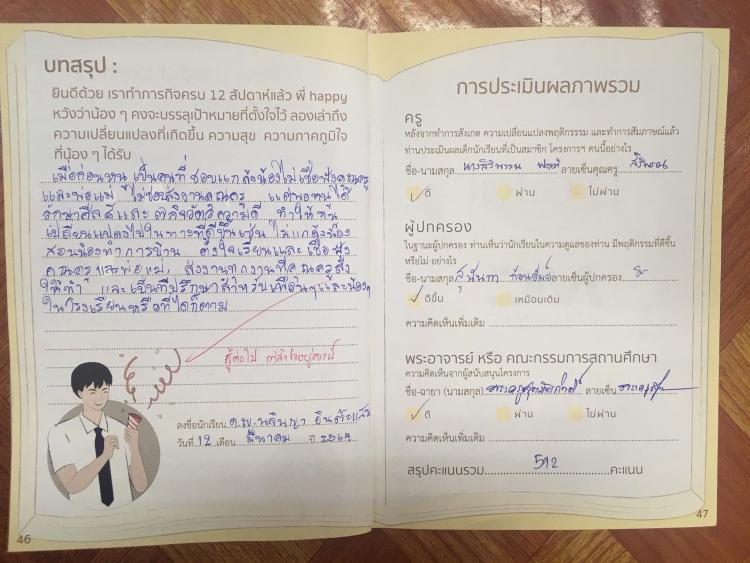 บทสรุป :
ยินดีด้วย เราทำภารกิจครบ 12 สัปดาห์แล้ว พี่ happy
หวังว่าน้อง ๆ คงจะบรรลุเป้าหมายที่ตั้งใจไว้ ลองเล่าถึง
ความเปลี่ยนแปลงที่เกิดขึ้น ความสุข ความภาคภูมิใจ
ที่น้อง ๆ ได้รับ
เมื่อก่อนหนูเป็นคนที่ชอบแกล้งน้องไม่เชื่อฟังคุณครู
และพ่อแม่ ไม่ชอบส่งงานคุณครู แต่พอหนูได้
รักษาศีล5และ ความดี ทำให้หนู
เปลี่ยนแปลงไปในทางที่ดีขึ้นเช่น ไม่แกล้งน้อง
สอนน้องทำการบ้าน ตั้งใจเรียนและเชื่อฟัง
คุณครูและพ่อแม่ ส่งงานทุกงานที่คุณครูสั่ง
ให้ทำ และเป็นที่ปรึกษาสำหรับเพื่อนๆและน้องๆ
ในโรงเรียนหรือที่ใดก็ตาม
สู้ต่อไป
ลงชื่อนักเรียน ด.ญ.นลินญา
วันที่ 12 เดือน มีนาคม ปี 2564
46
การประเมินผลภาพรวม
ครู
หลังจากทำการสังเกต ความเปลี่ยนแปลงพฤติกรรม และทำการสัมภาษณ์แล้ว
ท่านประเมินผลเด็กนักเรียนที่เป็นสมาชิก โครงการฯ คนนี้อย่างไร
ชื่อ-นามสกุล นางสิริพรรณ ลายเซ็นคุณครู สิริพรรณ
✓ ดี ผ่าน ไม่ผ่าน
ผู้ปกครอง
ในฐานะผู้ปกครอง ท่านเห็นว่านักเรียนในความดูแลของท่าน มีพฤติกรรมที่ดีขึ้น
หรือไม่ อย่างไร
ชื่อ-นามสกุล สุนันทา ลายเซ็นผู้ปกครอง
✓ ดีขึ้น เหมือนเดิม
ความคิดเห็นเพิ่มเติม
พระอาจารย์ หรือ คณะกรรมการสถานศึกษา
ความคิดเห็นจากผู้สนับสนุนโครงการ
ชื่อ-ฉายา (นามสกุล) ลายเซ็น
✓ ดี ผ่าน ไม่ผ่าน
ความคิดเห็นเพิ่มเติม
สรุปคะแนนรวม 592 คะแนน
47